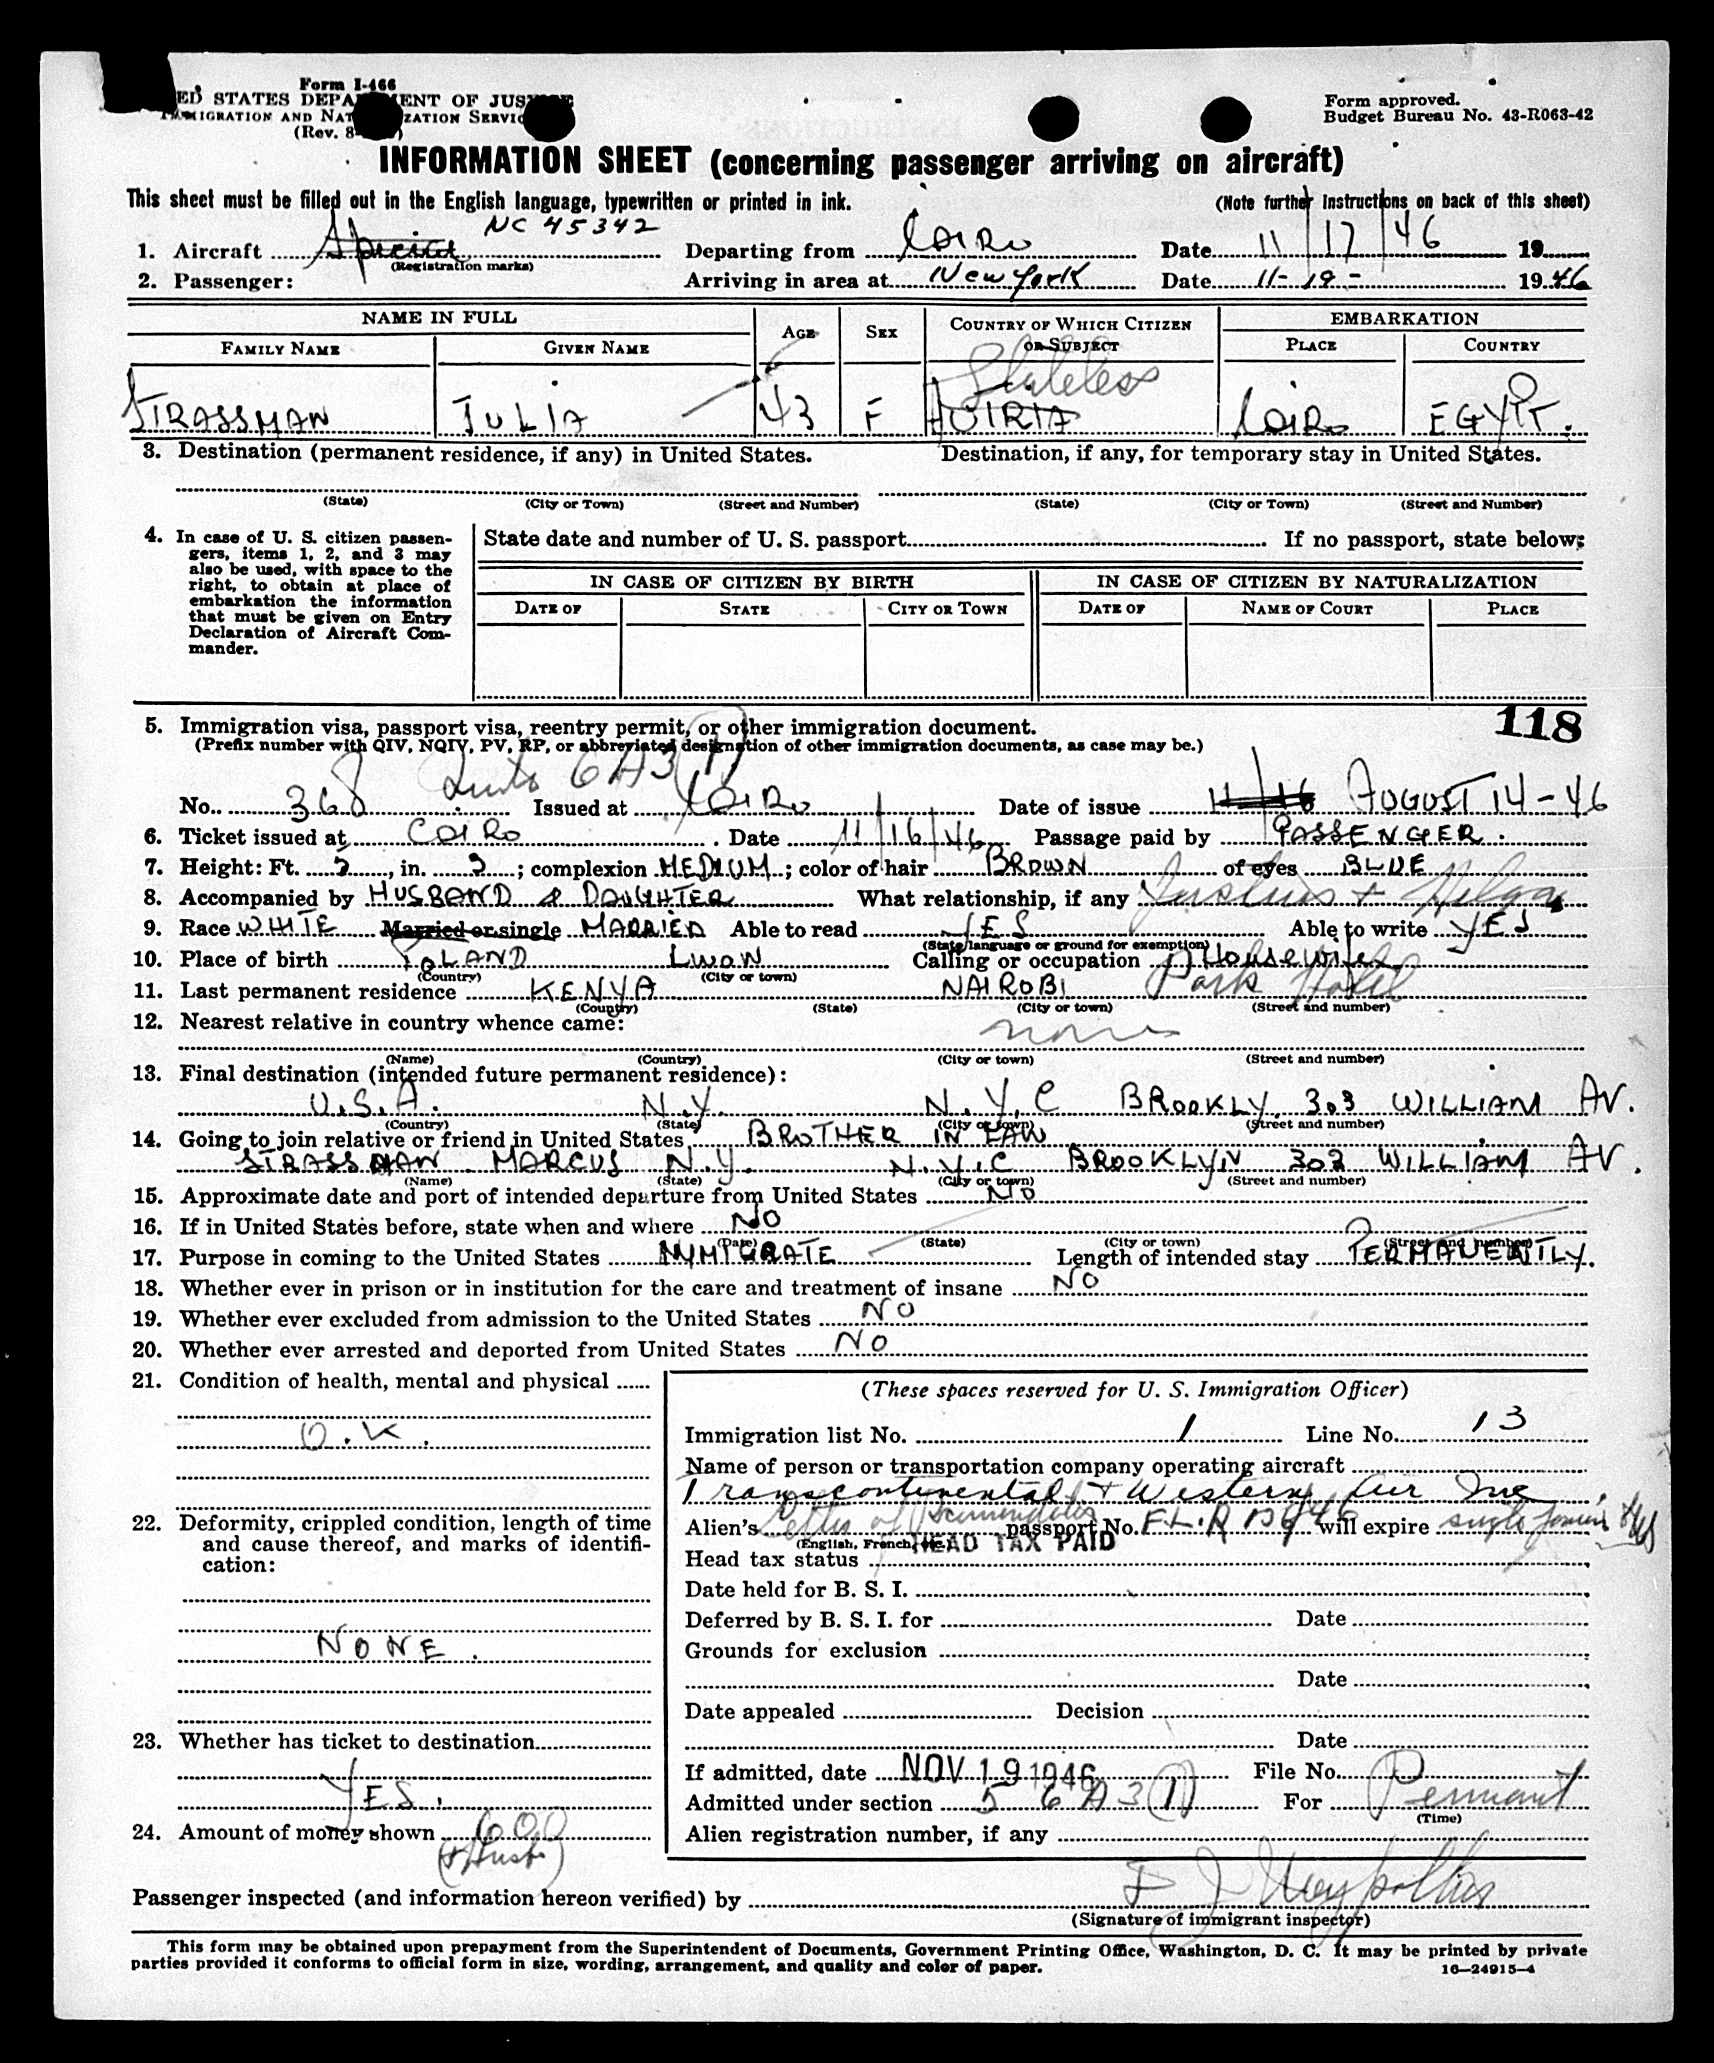 Form I-466
ED STATES DEPA ENT OF JUS
IMMIGRATION AND NAT ZATION SERVIC
(Rev. 8- )
Form approved.
Budget Bureau No. 43-R063-42
INFORMATION SHEET (concerning passenger arriving on aircraft)
This sheet must be filled out in the English language, typewritten or printed in ink. (Note further instructions on back of this sheet)
NC 45342
1. Aircraft Special Departing from CAIRO Date 11/17/46 19
(Registration marks)
2. Passenger: Arriving in area at New York Date 11-19- 1946
NAME IN FULL AGE SEX COUNTRY OF WHICH CITIZEN OR SUBJECT EMBARKATION
FAMILY NAME GIVEN NAME PLACE COUNTRY
Stateless
STRASSMAN JULIA 43 F AUTRIA CAIRO EGYPT.
3. Destination (permanent residence, if any) in United States. Destination, if any, for temporary stay in United States.
(State) (City or Town) (Street and Number) (State) (City or Town) (Street and Number)
4. In case of U. S. citizen passen-
gers, items 1, 2, and 3 may
also be used, with space to the
right, to obtain at place of
embarkation the information
that must be given on Entry
Declaration of Aircraft Com-
mander.
State date and number of U. S. passport If no passport, state below:
IN CASE OF CITIZEN BY BIRTH IN CASE OF CITIZEN BY NATURALIZATION
DATE OF STATE CITY OR TOWN DATE OF NAME OF COURT PLACE
118
5. Immigration visa, passport visa, reentry permit, or other immigration document.
(Prefix number with QIV, NQIV, PV, RP, or abbreviated designation of other immigration documents, as case may be.)
6A3(1)
No. 368 Issued at CAIRO Date of issue AUGUST 14-46
6. Ticket issued at CAIRO Date 11/16/46 Passage paid by PASSENGER.
7. Height: Ft. 5, in. 3; complexion MEDIUM; color of hair BROWN of eyes BLUE
8. Accompanied by HUSBAND & DAUGHTER What relationship, if any Justus + Helga
9. Race WHITE Married or single MARRIED Able to read YES Able to write YES
(State language or ground for exemption)
10. Place of birth POLAND LWOW Calling or occupation HOUSEWIFE
(Country) (City or town)
11. Last permanent residence KENYA NAIROBI Park Hotel
(Country) (State) (City or town) (Street and number)
12. Nearest relative in country whence came:
none
(Name) (Country) (City or town) (Street and number)
13. Final destination (intended future permanent residence):
U.S.A. N.Y. N.Y.C BROOKLY. 303 WILLIAM AV.
(Country) (State) (City or town) (Street and number)
14. Going to join relative or friend in United States BROTHER IN LAW
STRASSMAN MARCUS N.Y. N.Y.C BROOKLYN 303 WILLIAM AV.
(Name) (State) (City or town) (Street and number)
15. Approximate date and port of intended departure from United States NO
16. If in United States before, state when and where NO
(Date) (State) (City or town) (Street and number)
17. Purpose in coming to the United States IMMIGRATE Length of intended stay PERMANENTLY.
18. Whether ever in prison or in institution for the care and treatment of insane NO
19. Whether ever excluded from admission to the United States NO
20. Whether ever arrested and deported from United States NO
21. Condition of health, mental and physical
O.K.
22. Deformity, crippled condition, length of time
and cause thereof, and marks of identifi-
cation:
NONE.
23. Whether has ticket to destination
YES.
24. Amount of money shown 600
(Husb)
(These spaces reserved for U. S. Immigration Officer)
Immigration list No. 1 Line No. 13
Name of person or transportation company operating aircraft
Transcontinental & Western Air Inc.
Alien's Letter of passport No. will expire single
(English, French, etc.)
HEAD TAX PAID
Head tax status
Date held for B. S. I.
Deferred by B. S. I. for Date
Grounds for exclusion
Date
Date appealed Decision
Date
If admitted, date NOV 19 1946 File No.
Admitted under section 5 6A3(1) For Permant
(Time)
Alien registration number, if any
Passenger inspected (and information hereon verified) by
(Signature of immigrant inspector)
This form may be obtained upon prepayment from the Superintendent of Documents, Government Printing Office, Washington, D. C. It may be printed by private
parties provided it conforms to official form in size, wording, arrangement, and quality and color of paper.
16—24915-4